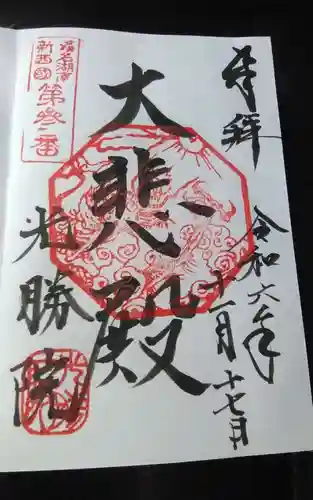 奉拝
令和六年
十一月十七日
大悲殿
浜名湖岸
新西国
第参十番
光勝院